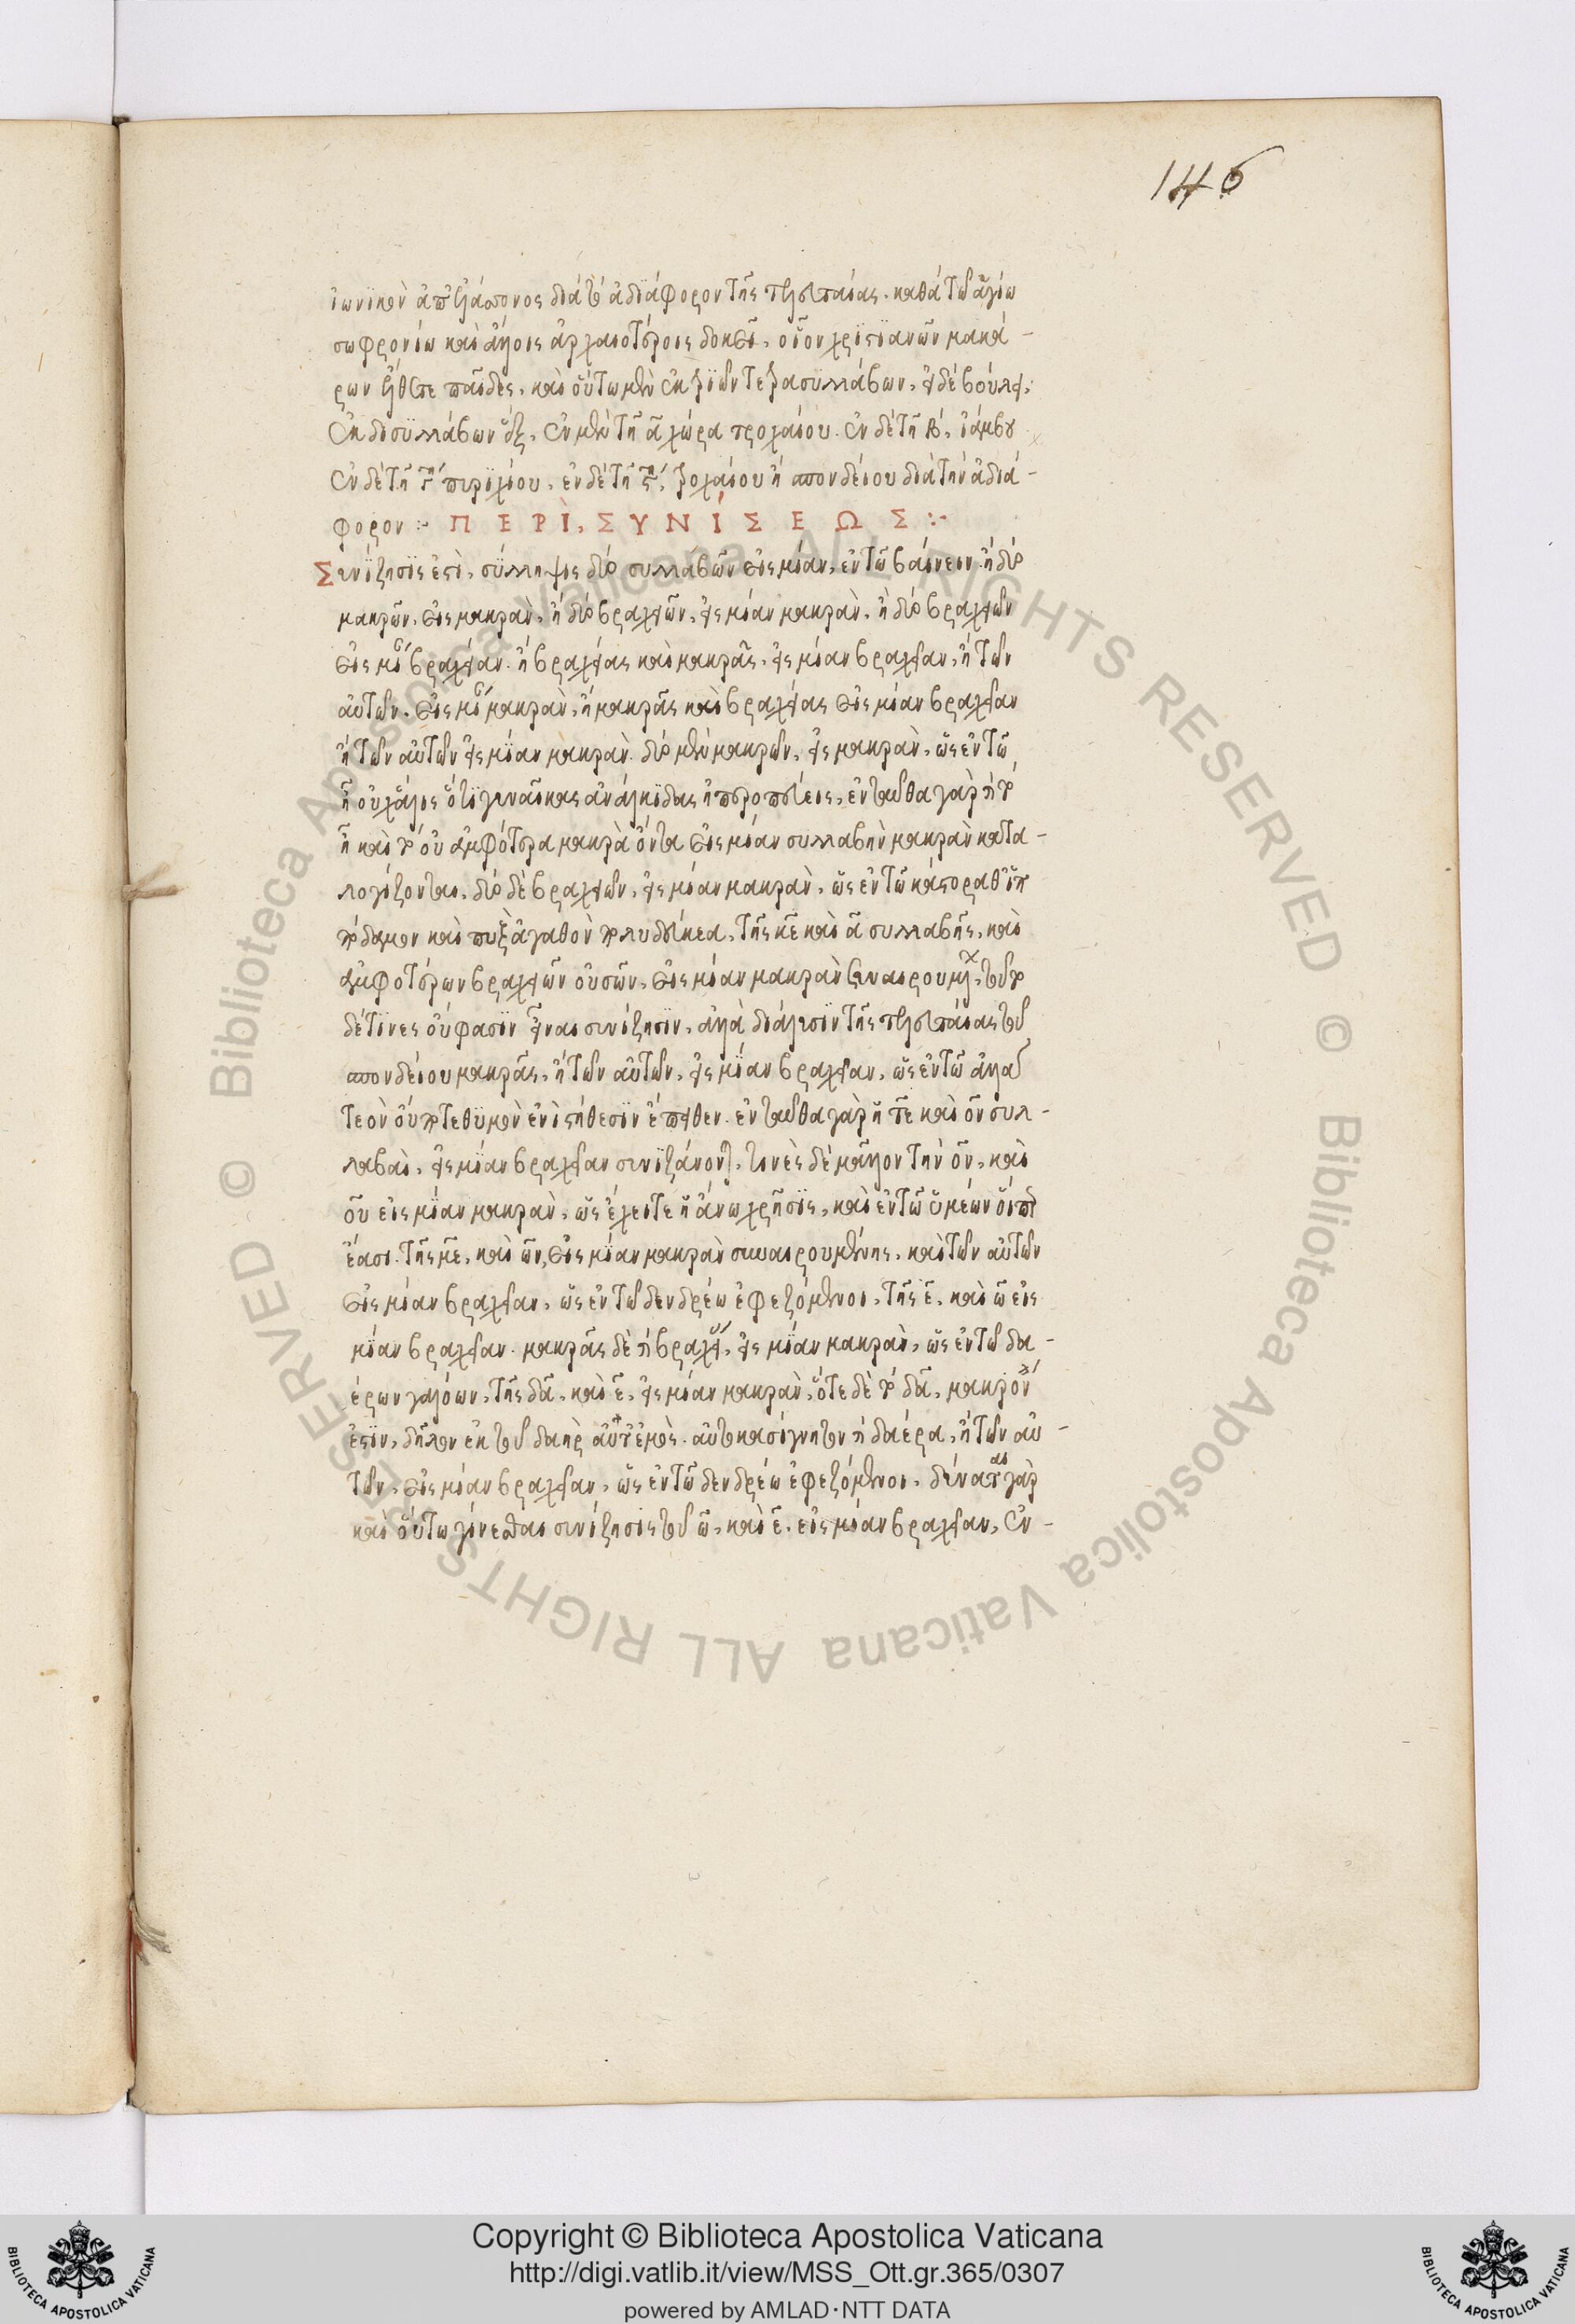 146
ἰωνικὸν ἀπ' ἐλάττονος διὰ τὸ ἀδιάφορον τῆς τελευταίας. καθὰ τῶ ἁγίω
σωφρονίω καὶ ἄλλοις ἀρχαιοτέροις δοκεῖ, οἷον χριστϊανῶν μακά-
ρων ἔλθετε παῖδες, καὶ οὕτω μὲν ἐκ τριῶν τετρασυλλάβων, εἰ δὲ βούλει,
ἐκ δισυλλάβων ἕξ, ἐν μὲν τῆ α χώρα τροχαίου. ἐν δὲ τῆ β, ἰάμβου
ἐν δὲ τῆ πυρϊχίου, ἐν δὲ τῆ ϛ, τροχαίου ἢ σπονδείου διὰ τὴν ἀδιά-
φορον :- ΠΕΡῚ, ΣΥΝΊΣΕΩΣ :-
Συνίζησϊς ἐστὶ, σύλληψις δύο συλλαβῶν εἰς μίαν, ἐν τῶ βαίνειν. ἢ δύο
μακρῶν, εἰς μακρὰν, ἢ δύο βραχειῶν, εἰς μίαν μακρὰν, ἢ δύο βραχειῶν
εἰς μίαν βραχεῖαν. ἢ βραχείας καὶ μακρᾶς, εἰς μίαν βραχεῖαν, ἢ τῶν
αὐτῶν, εἰς μίαν μακρὰν, ἢ μακρᾶς καὶ βραχείας εἰς μίαν βραχεῖαν
ἢ τῶν αὐτῶν εἰς μίαν μακρὰν. δύο μὲν μακρῶν, εἰς μακρὰν, ὡς ἐν τῶ
ἢ οὐχ ἅλις ὅτϊ γυναῖκας ἀνάλκιδας ἠπεροπεύεις, ἐνταῦθα γὰρ τὸ
ἢ καὶ τὸ οὐ ἀμφότερα μακρὰ ὄντα εἰς μίαν συλλαβὴν μακρὰν κατα-
λογίζονται, δύο δὲ βραχειῶν, εἰς μίαν μακρὰν, ὡς ἐν τῶ κάστορα θ' ἱπ
πόδαμον καὶ πὺξ ἀγαθὸν πολυδεύκεα, τῆς κε καὶ α συλλαβῆς, καὶ
ἀμφοτέρων βραχειῶν οὐσῶν, εἰς μίαν μακρὰν συναιρουμένων, τοῦτο
δέ τϊνες οὔ φασϊν εἶναι συνίζησϊν, ἀλλὰ διάλυσϊν τῆς τελευταίας τοῦ
σπονδείου μακρᾶς, ἢ τῶν αὐτῶν, εἰς μίαν βραχεῖαν, ὡς ἐν τῶ ἀλλὰ
τεὸν οὔποτε θϋμὸν ἐνὶ στήθεσϊν ἔπειθεν. ἐνταῦθα γὰρ ἥ τε καὶ ον συλ-
λαβαὶ, εἰς μίαν βραχεῖαν συνϊζάνουσι, τινὲς δὲ μᾶλλον τὴν ον, καὶ
ου εἰς μίαν μακρὰν, ὡς ἔχει τε ἡ ἄνω χρῆσϊς, καὶ ἐν τῶ ὑμέων ὅϊπερ
ἔασι. τῆς με, καὶ ων, εἰς μίαν μακρὰν συναιρουμένης, καὶ τῶν αὐτῶν
εἰς μίαν βραχεῖαν, ὡς ἐν τῶ δενδρέω ἐφεζόμενοι, τῆς ε, καὶ ω εἰς
μίαν βραχεῖαν. μακρᾶς δὲ ἢ βραχείας, εἰς μίαν μακρὰν, ὡς ἐν τῶ δα-
έρων γαλόων, τῆς δα, καὶ ε, εἰς μίαν μακρὰν, ὅτε δὲ τὸ δα, μακρόν
ἐστϊν, δῆλον ἐκ τοῦ δαὴρ αὖτ' ἐμὸς. αὐτοκασίγνητον ἢ δαέρα, ἢ τῶν αὐ-
τῶν, εἰς μίαν βραχεῖαν, ὡς ἐν τῶ δενδρέω ἐφεζόμενοι, δύναται γὰρ
καὶ οὕτω γίνεσθαι συνίζησις τοῦ ω, καὶ ε. εἰς μίαν βραχεῖαν, ἐν-
© Biblioteca Apostolica Vaticana ALL RIGHTS RESERVED © Biblioteca Apostolica Vaticana ALL RIGHTS RESERVED
Copyright © Biblioteca Apostolica Vaticana
http://digi.vatlib.it/view/MSS_Ott.gr.365/0307
powered by AMLAD·NTT DATA
BIBLIOTECA APOSTOLICA VATICANA
BIBLIOTECA APOSTOLICA VATICANA